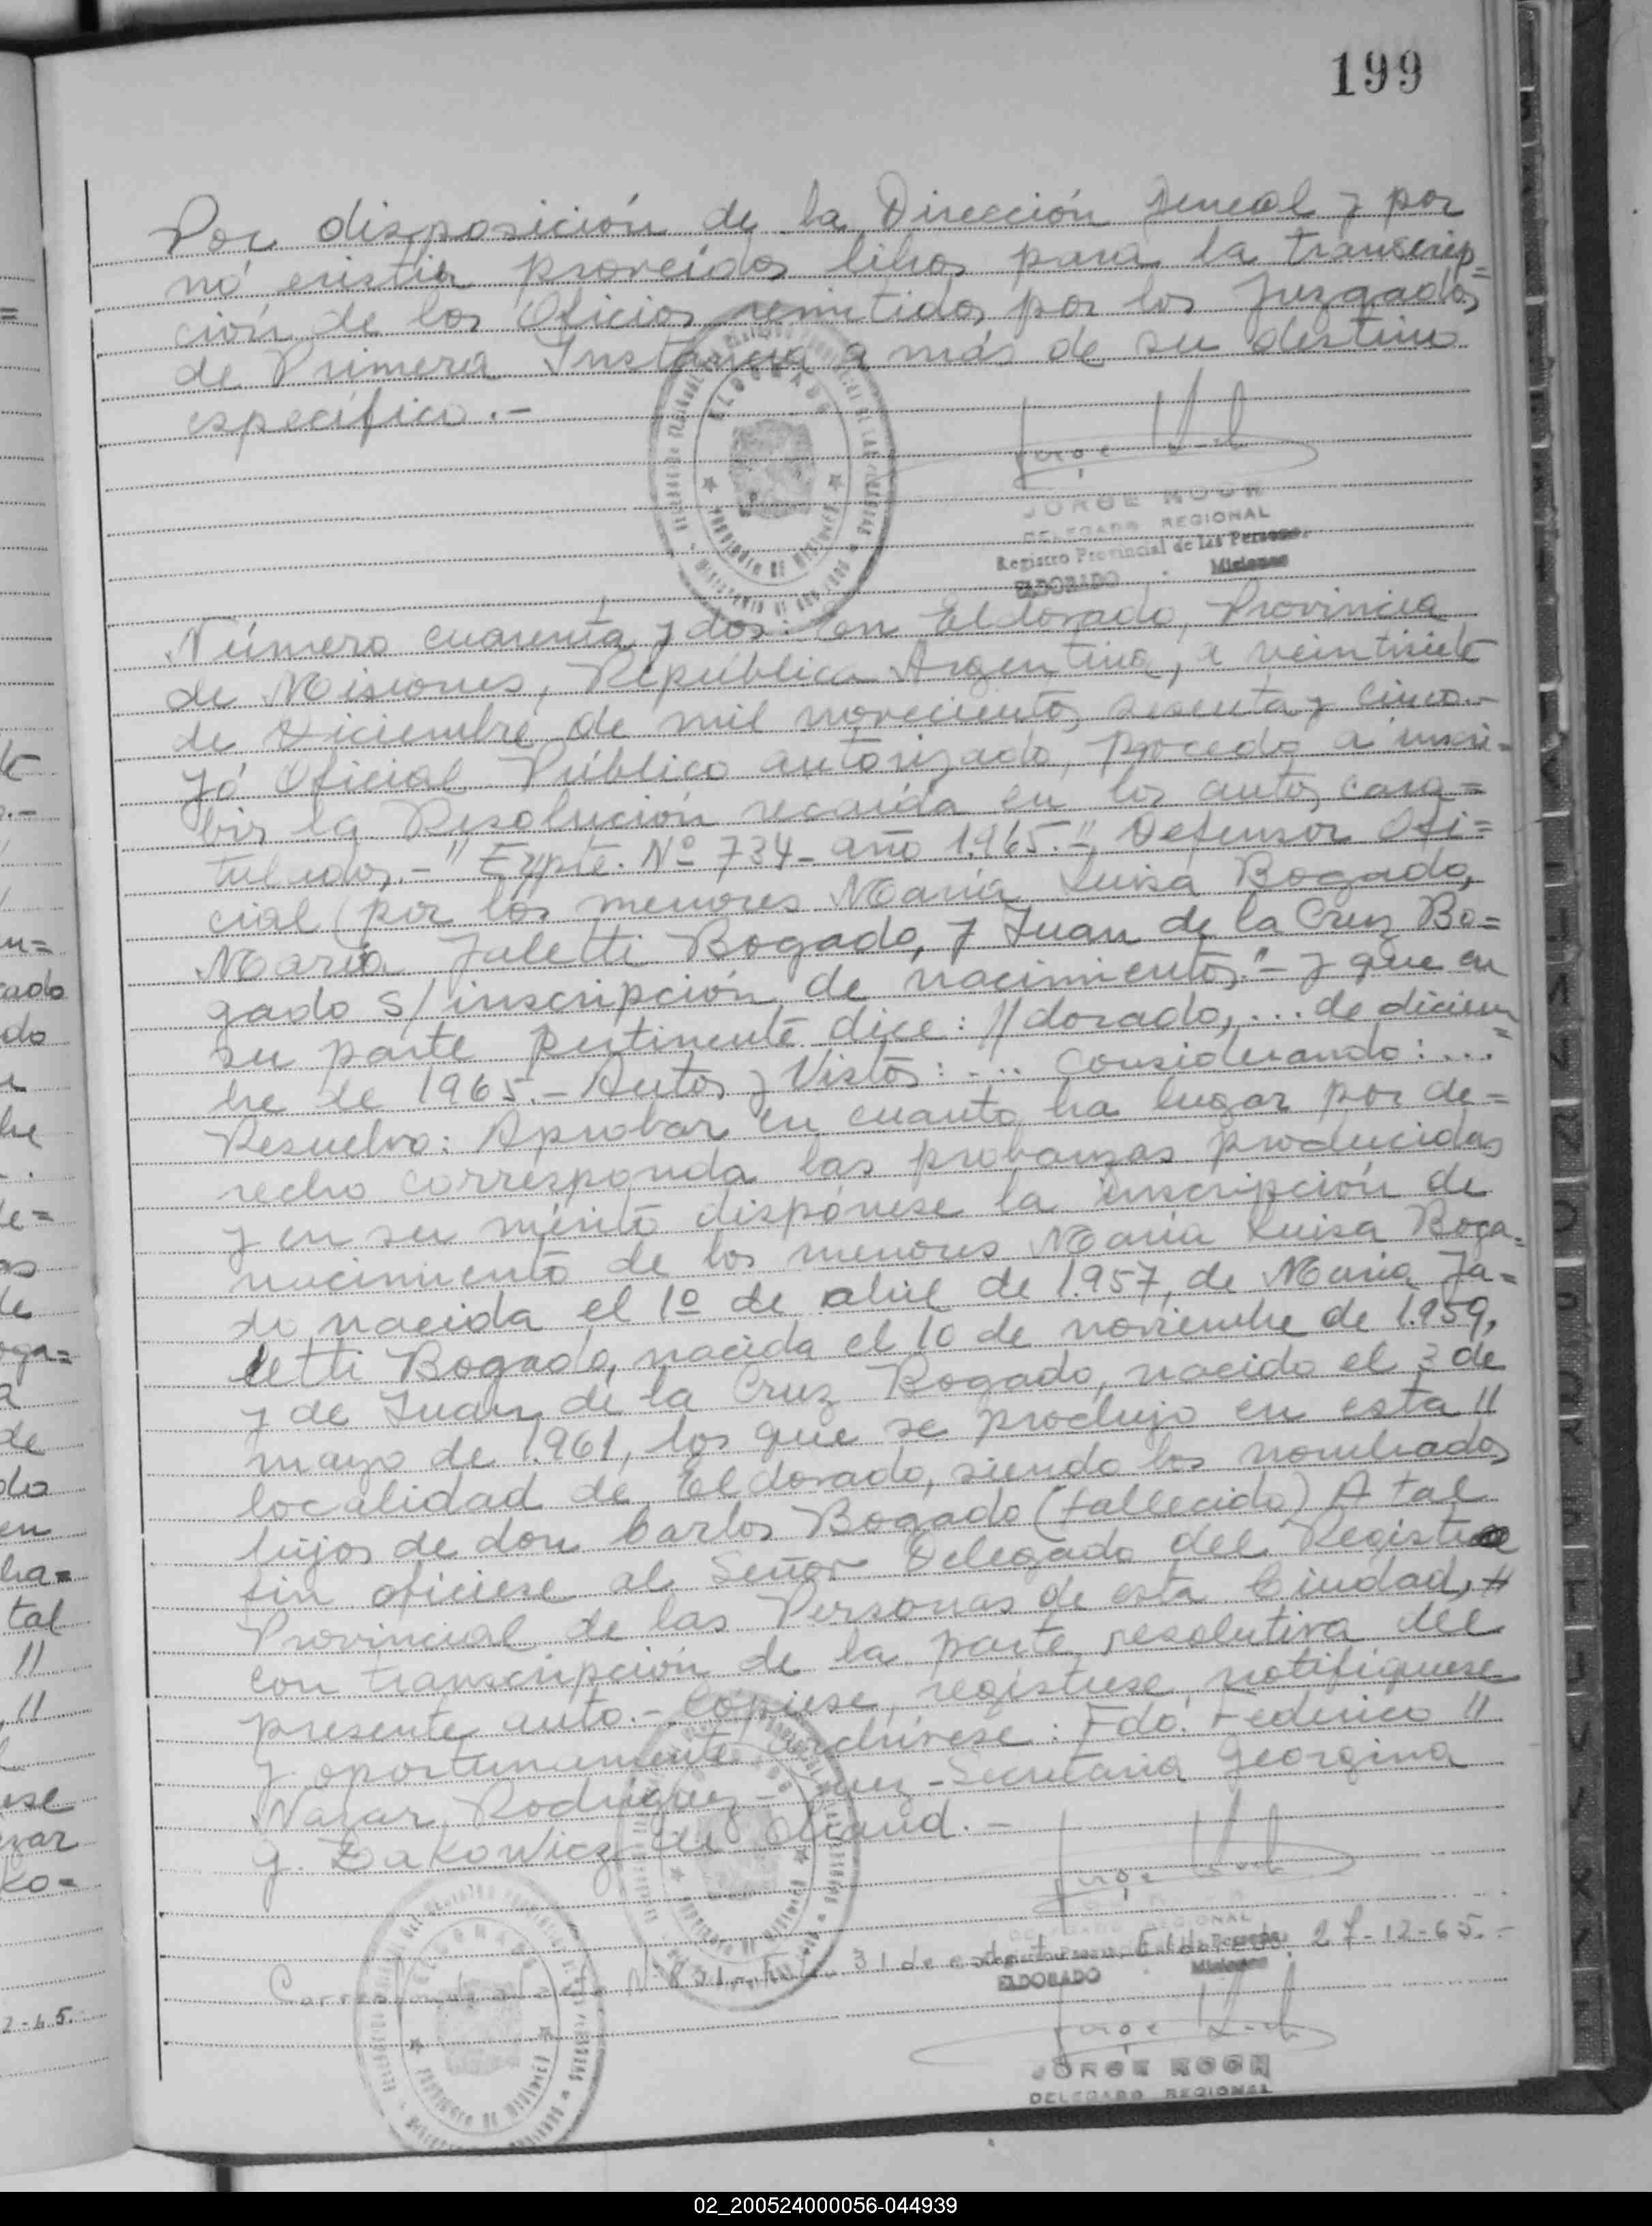 199
Por disposición de la Dirección General y por
no existir proveídos libros para la transcrip=
ción de los Oficios remitidos por los Juzgados
de Primera Instancia a más de su destino
específico.-
JORGE KOCH
DELEGADO REGIONAL
Registro Provincial de las Personas
ELDORADO - Misiones
Número cuarenta y dos: En Eldorado, Provincia
de Misiones, República Argentina, a veintisiete
de Diciembre de mil novecientos sesenta y cinco.-
Yó Oficial Público autorizado, procedo a inscri=
bir la Resolución recaída en los autos cara=
tulados.- "Expte. Nº 734- año 1.965.-" Defensor Ofi=
cial (por los menores María Luisa Bogado,
María Juletti Bogado, y Juan de la Cruz Bo=
gado S/ inscripción de nacimientos."- y que en
su parte pertinente dice: //dorado,... de diciem=
bre de 1965.- Autos y Vistos: .... Considerando: ...
Resuelvo: Aprobar en cuanto ha lugar por de=
recho corresponda las probanzas producidas
y en su mérito dispónese la inscripción de
nacimiento de los menores María Luisa Boga=
do, nacida el 1º de abril de 1.957, de María Ja=
letti Bogado, nacida el 10 de noviembre de 1.959,
y de Juan de la Cruz Bogado, nacido el 3 de
mayo de 1.961, los que se produjo en esta //
localidad de Eldorado, siendo los nombrados
hijos de don Carlos Bogado (fallecido) A tal
fin ofíciese al Señor Delegado del Registro
Provincial de las Personas de esta Ciudad, //
con transcripción de la parte resolutiva del
presente auto.- Cópiese, regístrese, notifíquese
y oportunamente archívese. Fdo. Federico //
Nazar Rodríguez - Juez - Secretaria Georgina
G. Zakowicz de
Corresponde al acta Nº 831 - Folio 31 de este Eldorado, 27-12-65.-
ELDORADO Misiones
JORGE KOCH
DELEGADO REGIONAL
02_200524000056-044939